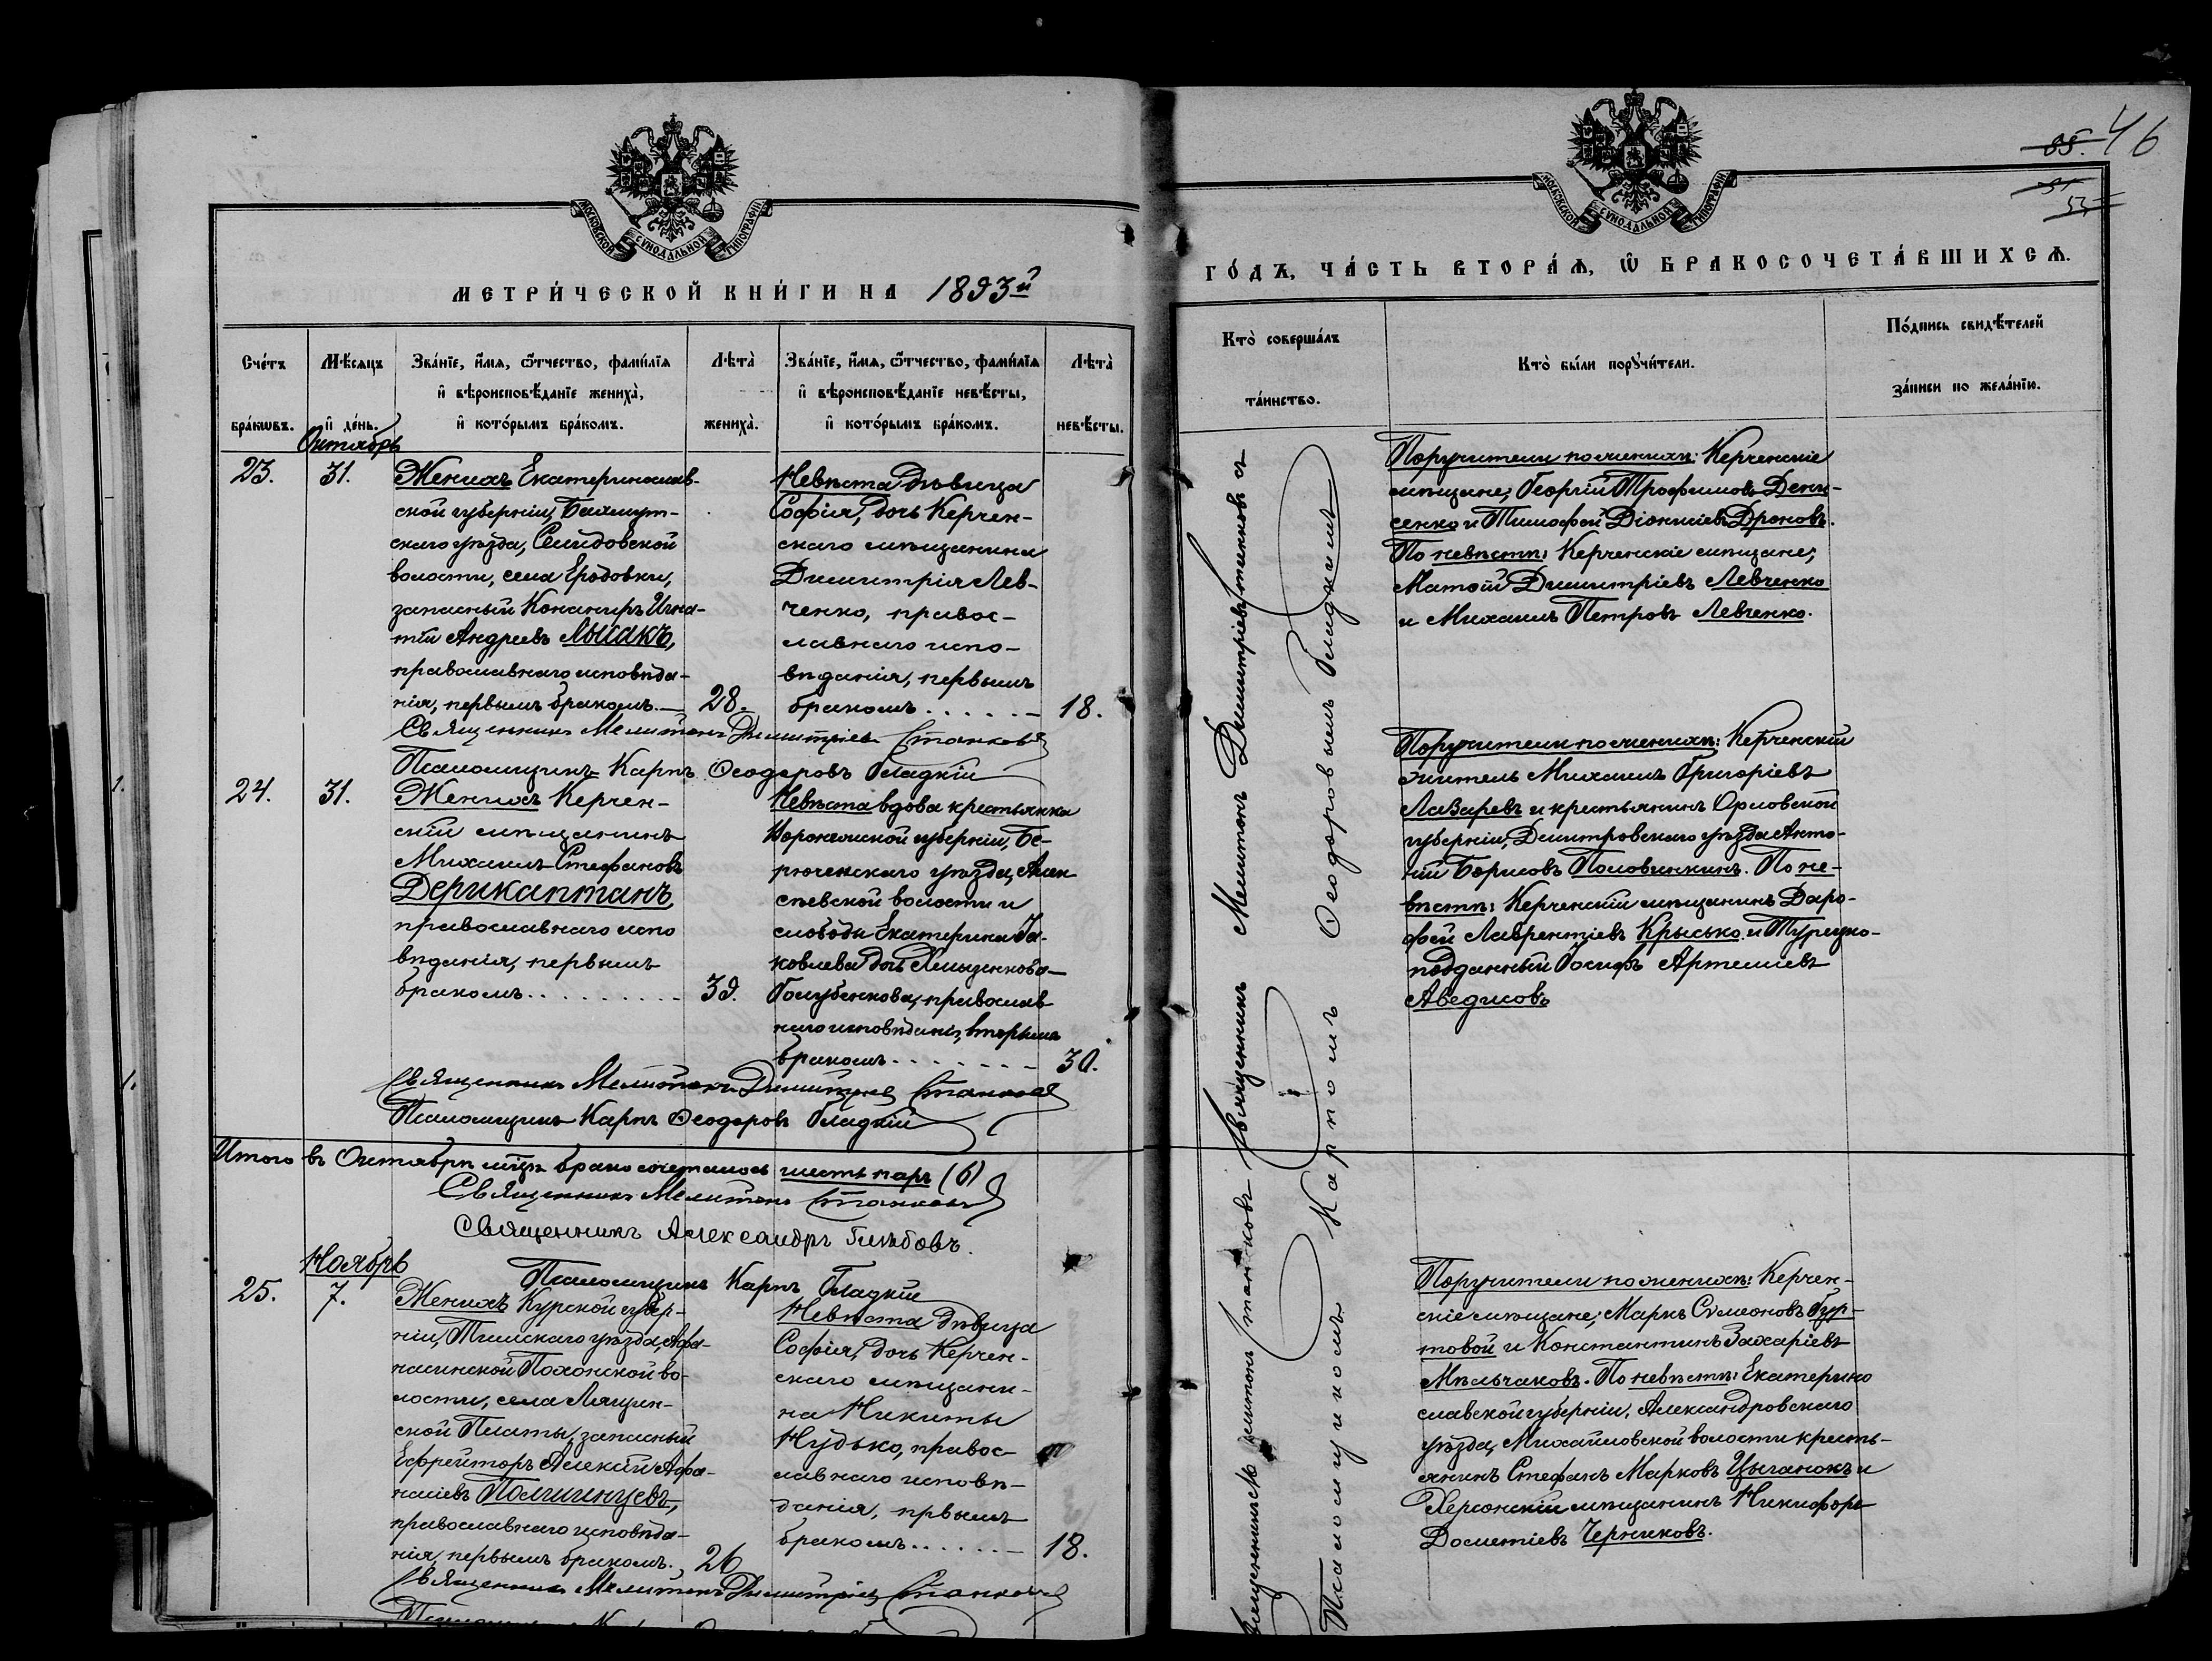 46
МОСКОВСКОЙ СѴНОДАЛЬНОЙ ТИПОГРАФІИ
МЕТРИ́ЧЕСКОЙ КНИ́ГИ НА 1893й
Сче́тъ бра́кѡвъ.
Мѣ́сяцъ и҆ де́нь.
Зва́нїе, и҆́мѧ, ѻ҆́тчество, фами́лїѧ
и҆ вѣроисповѣ́данїе жениха̀,
и҆ кото́рымъ бра́комъ.
Лѣта̀ жениха̀.
Зва́нїе, и҆́мѧ, ѻ҆́тчество, фами́лїѧ
и҆ вѣроисповѣ́данїе невѣ́сты,
и҆ кото́рымъ бра́комъ.
Лѣта̀ невѣ́сты.
Октябрь
23.
31.
Женихъ Екатеринослав-
ской губерніи, Бахмут-
скаго уѣзда, Селидовской
волости, села Гродовки,
запасный Канониръ Игна-
тій Андреевъ Лысакъ,
православнаго исповѣда-
нія, первымъ бракомъ.—
28.
Невѣста дѣвица
Софія, дочь Керчен-
скаго мѣщанина
Димитрія Лев-
ченко, правос-
лавнаго испо-
вѣданія, первымъ
бракомъ......—
18.
Священникъ Мелитонъ Димитріевъ Станковъ
Псаломщикъ Карпъ Ѳеодоровъ Гладкій
24.
31.
Женихъ Керчен-
скій мѣщанинъ
Михаилъ Стефановъ
Дерикаптанъ,
православнаго испо
вѣданія, первымъ
бракомъ..........
39.
Невѣста вдова крестьянка
Воронежской губерніи, Би-
рюченскаго уѣзда, Алек
сѣевской волости и
слободы Екатерина Іа-
ковлева дочь
Голубенкова, православ
наго исповѣданія, вторымъ
бракомъ.......—
30.
Священникъ Мелитонъ Димитріевъ Станковъ
Псаломщикъ Карпъ Ѳеодоровъ Гладкій
Итого въ Октябрѣ мѣцѣ брако сочеталось шесть паръ (6)
Священникъ Мелитонъ Станковъ
Священникъ Александръ Глѣбовъ.
Псаломщикъ Карпъ Гладкій
Ноябрь
25.
7.
Женихъ Курской губер-
ніи, Тимскаго уѣзда, Афа-
насинской Похонской во-
лости, села Лящин-
ской Платы, запасный
Ефрейторъ Алексій Афа-
насіевъ
православнаго исповѣда-
нія, первымъ бракомъ.
26
Невѣста дѣвица
Софія, дочь Керчен-
скаго мѣщани-
на Никиты
Нудько, правос-
лавнаго исповѣ-
данія, првымъ
бракомъ......—
18.
Священникъ Мелитонъ Димитріевъ Станковъ
МОСКОВСКОЙ СѴНОДАЛЬНОЙ ТИПОГРАФІИ
ГО́ДЪ, ЧА́СТЬ ВТОРА́Ѧ, Ѽ БРАКОСОЧЕТА́ВШИХСѦ.
Кто̀ соверша́лъ
та́инство.
Кто̀ бы́ли порꙋчи́тели.
По́дпись свидѣ́телей
за́писи по жела́нїю.
Священникъ Мелитонъ Димитріевъ Станковъ съ
Псаломщикомъ Карпомъ Ѳеодоровымъ Гладкимъ
Поручители по женихѣ: Керченскіе
мѣщане; Георгій Трофимовъ Дени-
сенко и Тимофей Діонисіевъ Дроновъ.
По невѣстѣ: Керченскіе мѣщане;
Матѳій Димитріевъ Левченко
и Михаилъ Петровъ Левченко.
Поручители по женихѣ: Керченскій
житель Михаилъ Григоріевъ
Лазаревъ и крестьянинъ Орловской
губерніи, Дмитровскаго уѣзда Анто-
ній Борисовъ Половинкинъ. По не-
вѣстѣ: Керченскій мѣщанинъ Доро-
фей Лаврентіевъ Крысько и Турецко-
подданный Іосифъ Артеміевъ
Аведисовъ
Поручители по женихѣ: Керчен-
скіе мѣщане; Маркъ Сѵмеоновъ Бур-
товой и Константинъ Захаріевъ
Мѣльчаковъ. По невѣстѣ: Екатерино
славской губерніи, Александровскаго
уѣзда, Михайловской волости кресть-
янинъ Стефанъ Марковъ Цыганокъ и
Херсонскій мѣщанинъ Никифоръ
Дометіевъ Черниковъ.